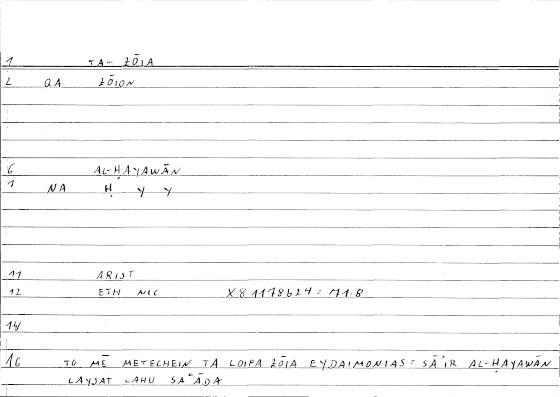 1 TA- ZŌIA
L QA ZŌION
6 AL-ḤAYAWĀN
1 NA Ḥ Y Y
11 ARIST
12 ETH NIC X81178624 = 71.8
14
16 TO MĒ METECHEIN TA LOIPA ZŌIA EYDAIMONIAS = SĀʾIR AL-ḤAYAWĀN
LAYSAT LAHU SAʿĀDA